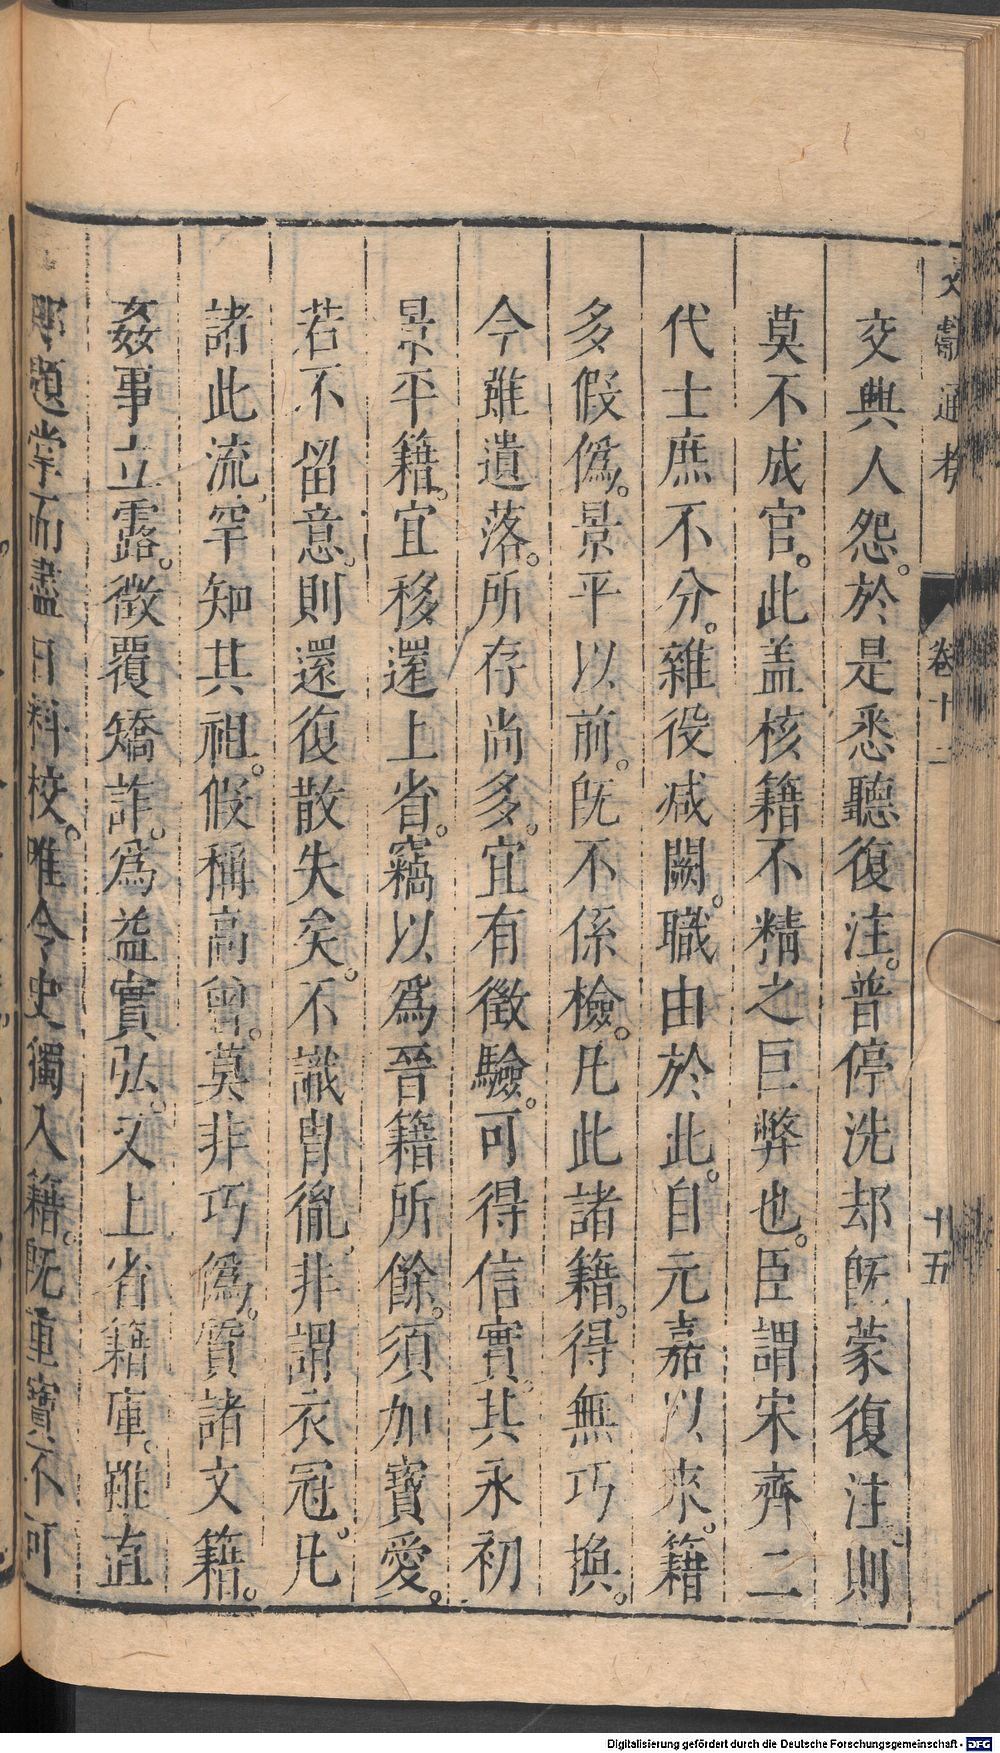 文獻通考 卷十二 十五
交與人怨。於是悉聽復注。普停洗却旣蒙復注。則
莫不成官。此盖核籍不精之巨弊也。臣謂宋齊二
代士庶不分。雜役减闕。職由於此。自元嘉以來。籍
多假僞。景平以前。旣不係檢。凡此諸籍。得無巧換。
今雖遺落。所存尚多。宜有徵驗。可得信實。其永初
景平籍。宜移還上省。竊以爲晉籍所餘。須加寶愛。
若不留意。則還復散失矣。不識胄胤。非謂衣冠。凡
諸此流。罕知其祖。假稱高曾。莫非巧僞。質諸文籍。
姦事立露。徵覆矯詐。爲益實弘。又上省籍庫。雖直
題掌而盡日料校。唯令史獨入籍。旣重寶不可
Digitalisierung gefördert durch die Deutsche Forschungsgemeinschaft - DFG